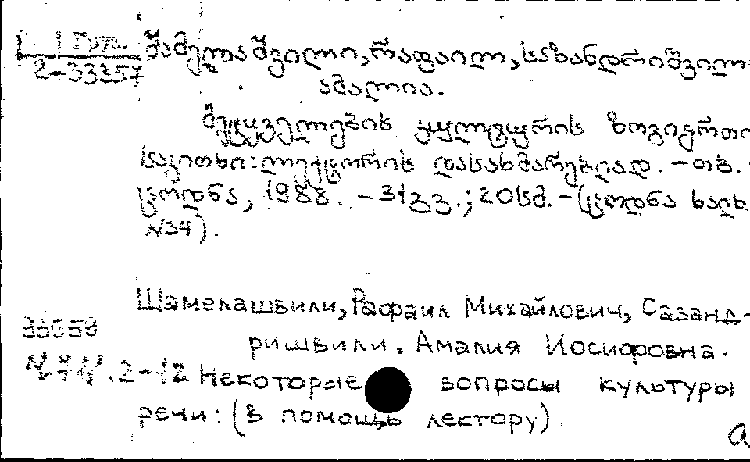 შამელაშვილი, რაფაილ, საზანდრიშვილი
2-33257
ამალია.
მეტყველების კულტურის ზოგიერთი
საკითხი: ლექტორის დასახმარებლად. - თბ.
ცოდნა, 1988. - 31გვ.; 20სმ. - (ცოდნა ხალხ
N34).
Шамелашвили, Рафаил Михайлович, Сазанд-
ришвили, Амалия Иосифовна.
Некоторые вопросы культуры
речи: (в помощь лектору)